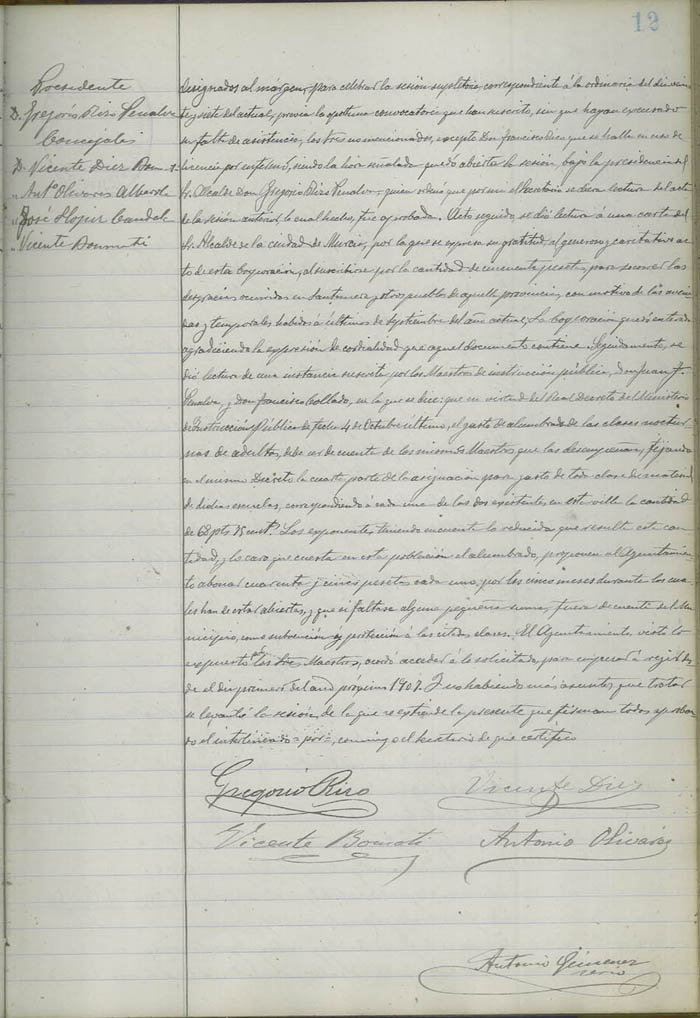 12
Presidente
D. Gregorio Rizo Penalva
Concejales
D. Vicente Diez Bonmati
" Antº Olivares Alberola
" José Candela
" Vicente Bonmati
designados al margen, para celebrar la sesión supletoria correspondiente á la ordinaria del dia vein
te y siete del actual, previa la oportuna convocatoria que han suscrito, sin que hayan excusado
su falta de asistencia, los Sres no mencionados, excepto Don Francisco Diez que se halla en uso de
licencia por enfermo, siendo la hora señalada quedó abierta la sesión, bajo la presidencia del
Sr. Alcalde Don Gregorio Rizo Penalva, quien ordenó que por mi el Secretario se diera lectura del acta
de la sesión anterior, lo cual hecho, fue aprobada. Acto seguido se dio lectura á una carta del
Sr. Alcalde de la ciudad de Murcia, por la que se expresa su gratitud al generoso y caritativo ac
to de esta Corporación, al suscribirse por la cantidad de cincuenta pesetas para socorrer las
desgracias ocurridas en Santomera y otros pueblos de aquella provincia, con motivo de las aveni
das y temporales habidos á últimos de Septiembre del año actual; La Corporación quedó enterada
agradeciendo la expresión de cordialidad que aquel documento contiene. Seguidamente, se
dió lectura de una instancia suscrita por los Maestros de instrucción pública, Don Juan
Penalva, y Don Francisco Collado, en la que se dice: que en virtud del Real Decreto del Ministerio
de Instrucción Pública de fecha 4 de Octubre último, el gasto de alumbrado de las clases noctur
nas de adultos, debe ser de cuenta de los mismos Maestros que las desempeñan, fijando
en el mismo Decreto la cuarta parte de la asignación para gasto de toda clase de material
de dichas escuelas, correspondiendo á cada una de las dos existentes en esta villa la cantidad
de pts centº. Los exponentes, teniendo en cuenta lo reducida que resulta esta can
tidad, y lo caro que cuesta en esta población el alumbrado, proponen al Ayuntamien
to abonar cuarenta y cinco pesetas cada uno, por los cinco meses durante los cua
les han de estar abiertas, y que si faltase alguna pequeña suma, fuera de cuenta del Mu
nicipio, como subvención y protección á las citadas clases. El Ayuntamiento, visto lo
expuesto por los Sres Maestros, acordó acceder á lo solicitado, para empezar á regir des
de el dia primero del año próximo 1907. Y no habiendo más asuntos que tratar
se levantó la sesión, de la que se extiende la presente que firman todos aproban
do el interlineado = por =, conmigo el Secretario de que certifico
Gregorio Rizo
Vicente Diez
Vicente Bonmati
Antonio Olivares
Antonio Gimenez
srio